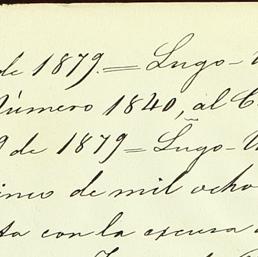 de 1879.= Lugo-
Número 1840, al C
9 de 1879= Lugo-
inco de mil ocho
ta con la excusa